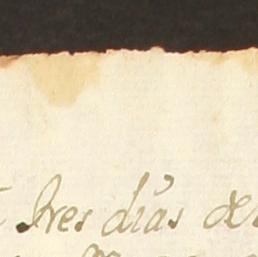 tres dias de